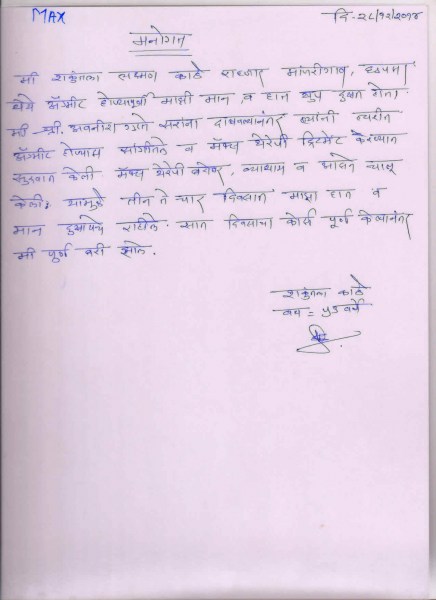 MAX
दि-२८/१२/२०१४
मनोगत
मी शकुंतला लक्ष्मण काळे राहणार मांजरीगाव, हडपसर
येथे अॅडमीट होण्यापूर्वी माझी मान, व हात खुप दुखत होता.
मी श्री. अवनीश गुप्ते सरांना दाखवल्यानंतर त्यांनी त्वरीत
अॅडमीट होण्यास सांगीतले व मॅक्स थेरेपी ट्रिटमेंट करण्यास
सुरवात केली मॅक्स थेरेपी बरोबर, व्यायाम व मालिश चालू
केली; यामुळे तीन ते चार दिवसात माझा हात व
मान दुखायचे राहीले. सात दिवसाचा कोर्स पूर्ण केल्यानंतर
मी पूर्ण बरी झाले.
शकुंतला काळे
वय = ५५ वर्षे